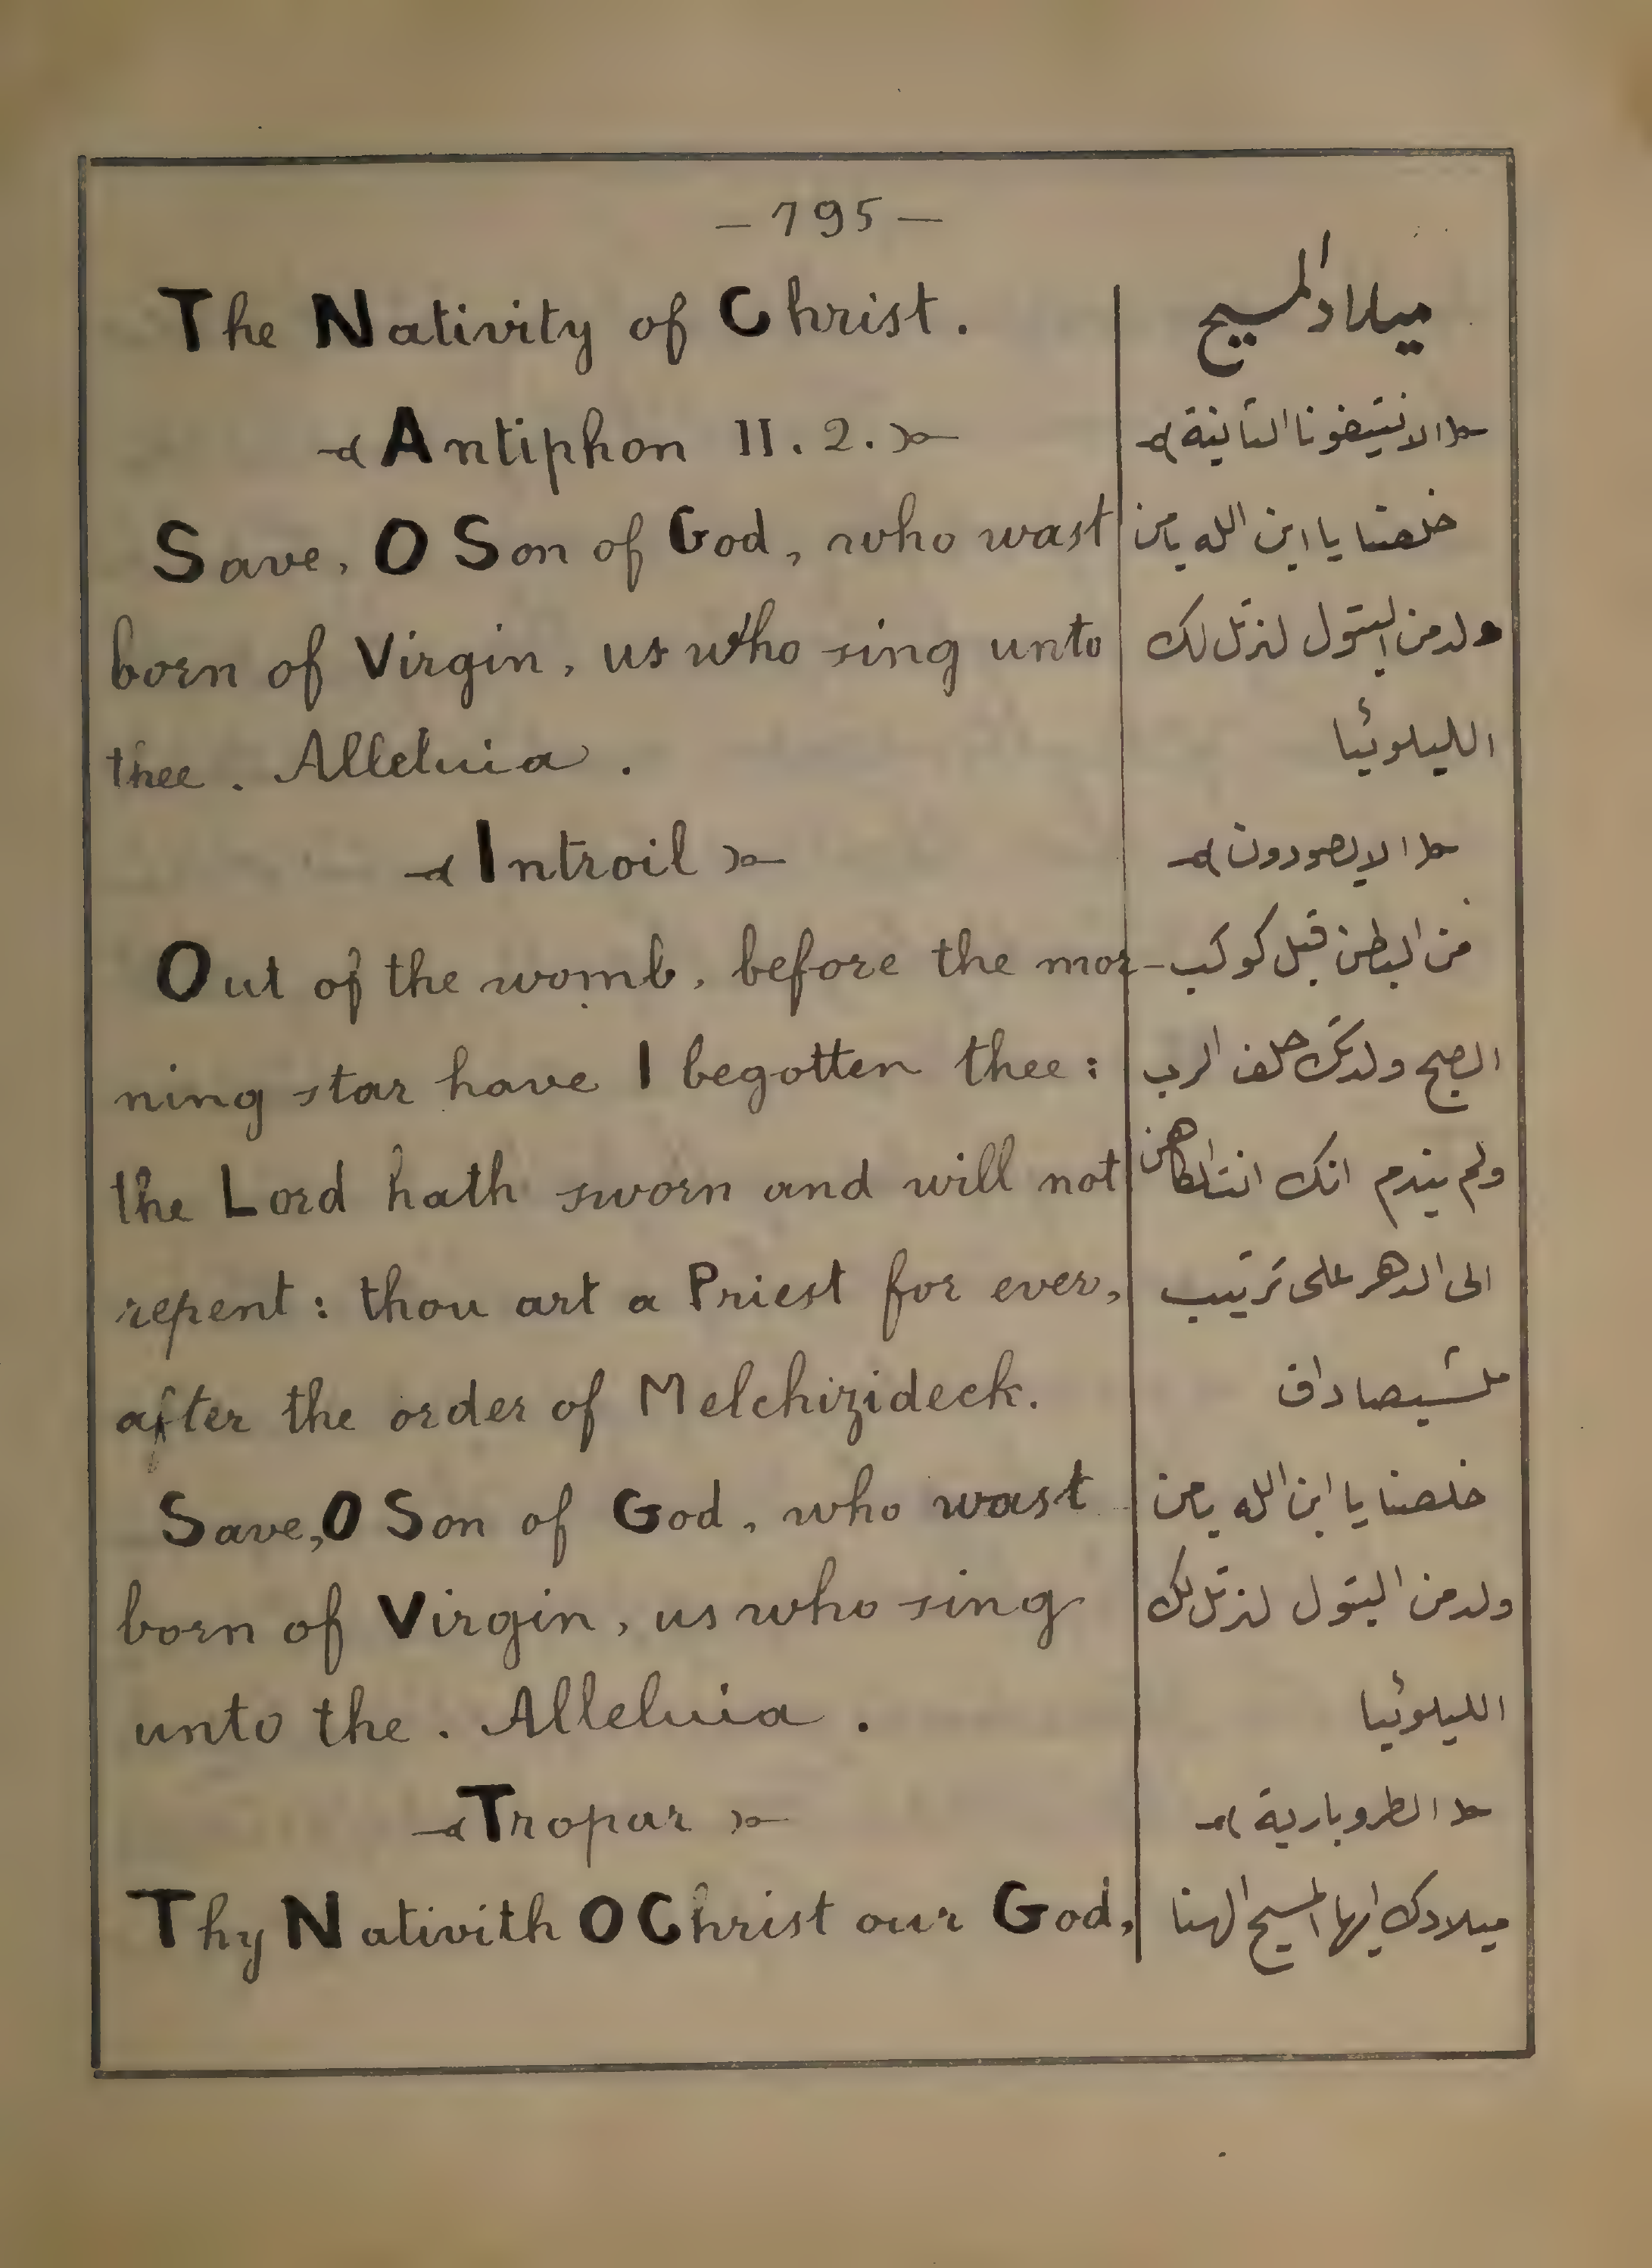 — 195 —
The Nativity of Christ.
Antiphon II. 2.
Save, O Son of God, who wast
born of Virgin, us who sing unto
thee. Alleluia.
Introil
Out of the womb, before the mor-
ning star have I begotten thee:
the Lord hath sworn and will not
repent: thou art a Priest for ever,
after the order of Melchizideck.
Save, O Son of God, who wast
born of Virgin, us who sing
unto the. Alleluia.
Tropar
Thy Nativith O Christ our God,
ميلاد المسيح
الانتيفونا الثانية
خلصنا يا ابن الله يامن
ولد من البتول لنرتل لك
الليلوئيا
الايصودون
من البطن قبل كوكب
الصبح ولدتك حلف الرب
ولم يندم انك انت الكاهن
الى الدهر على ترتيب
ملشيصاداق
خلصنا يا ابن الله يامن
ولد من البتول لنرتل لك
الليلوئيا
الطروبارية
ميلادك ايها المسيح الهنا